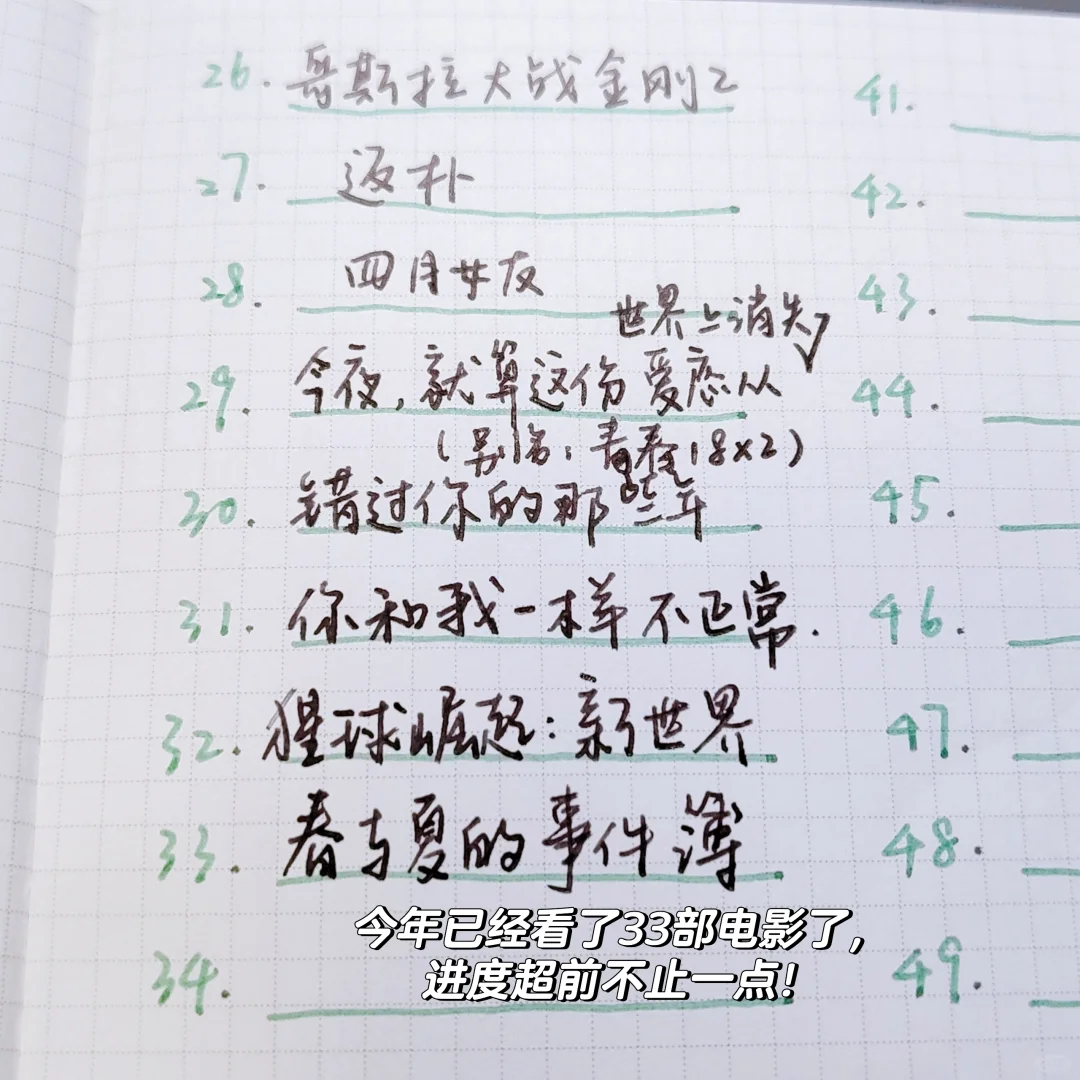 26. 哥斯拉大战金刚2
27. 返朴
28. 四月女友
世界上消失
29. 今夜，就算这份爱恋从
（别名：青春18x2）
30. 错过你的那些年
31. 你和我一样不正常.
32. 猩球崛起：新世界
33. 春与夏的事件簿
34.
41.
42.
43.
44.
45.
46.
47.
48.
49.
今年已经看了33部电影了，
进度超前不止一点！